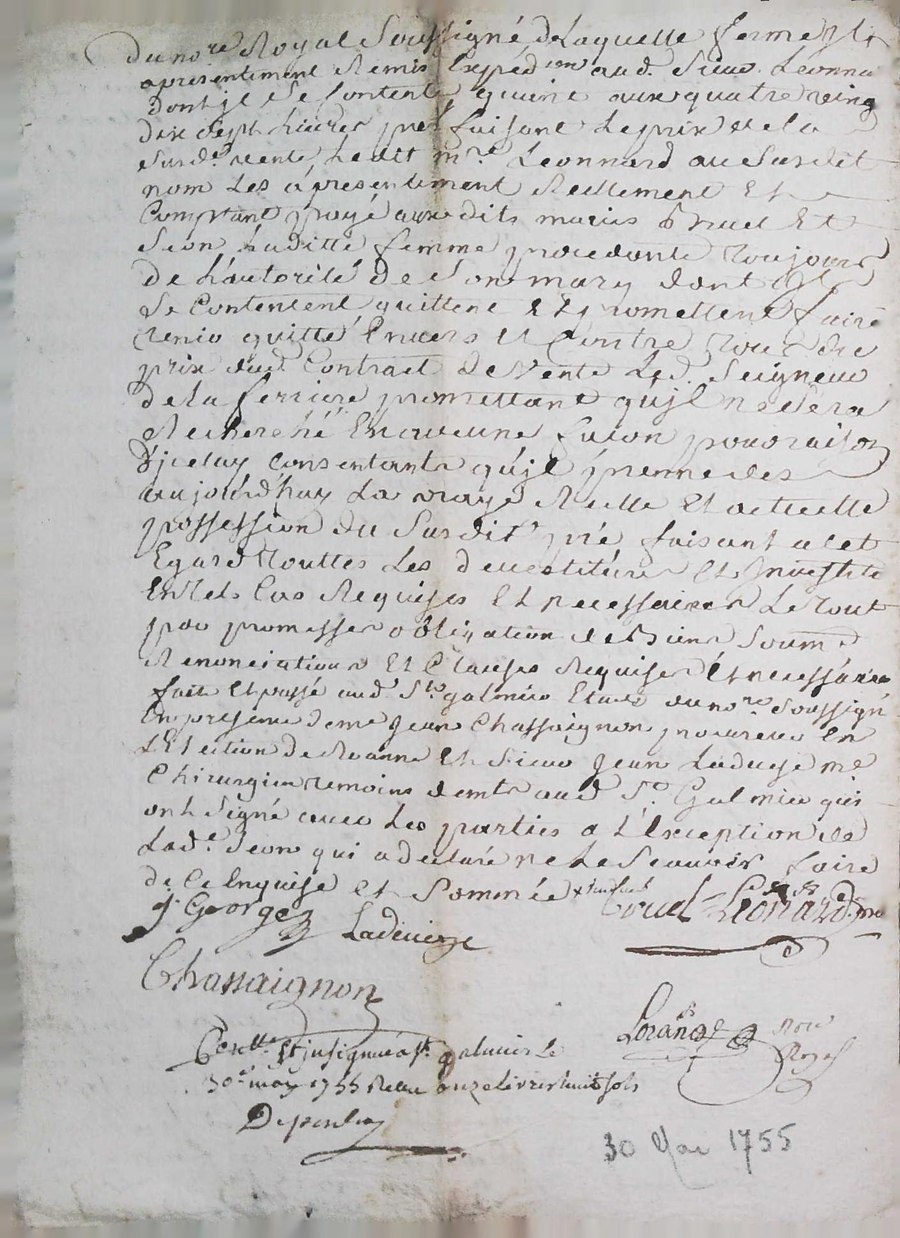 du no.re Royal Soussigné de Laquelle ferme Il a
apresentement Remis Expéd.ion aud. Sieur Leonna
dont jl se Contente quant aux quatre vingt
dix sept Livres
Susd.e vente Ledit m.re Leonnard au Susdit
nom Les à presentement Reellement Et
Comptant payé auxdits mariés Et
Seon Laditte femme procedante toujours
de L'autorité de Son mary dont jls
Se Contentent quittent Et promettent faire
tenir quitte Envers Et Contre tous du
prix dud. Contract de vente Led. Seigneur
de La ferriere promettant qu'jl ne Sera
Recherché En aucune façon pour raison
d'jceluy Consentants qu'jl prenne des
aujourd'huy La vraye Reelle Et actuelle
possession du Susdit pré faisant a cet
Egard touttes Les devestitures Et Investite
En tels Cas Requises Et necessaires Le tout
par promesses obligation de Biens Soum.
Renonciations Et Clauses Requises Et necessaires
fait Et passé aud. S.t galmier Etude du no.re Soussigné
En presence de me Jean Chassaignon procureur En
L'Election de Roanne Et Sieur Jean Ladveze me
Chirurgien temoins dem.ts aud. S.t Galmier qui
ont Signé avec Les parties a L'Exception de
Lad.e Seon qui a declaré ne Le Scavoir faire
de Ce Enquise Et Sommée
J. George Leonard
Chassaignon
Con.tte Et insignué a St. galmier Le
30e may 1755 Reçu onze livres huit sols
30 Mai 1755